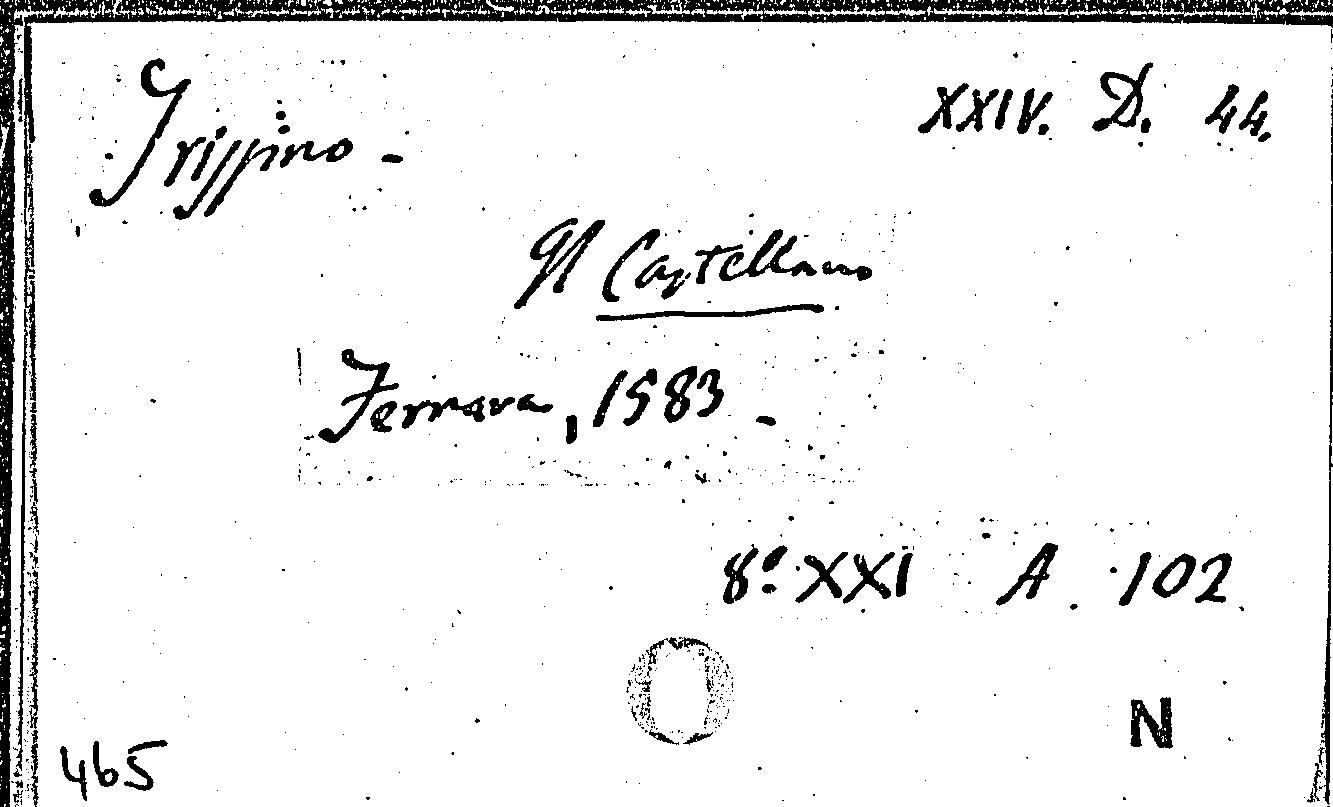 Trissino - XXIV. D. 44.
Il Castellano
Ferrara, 1583 -
8º XXI A 102
N
465